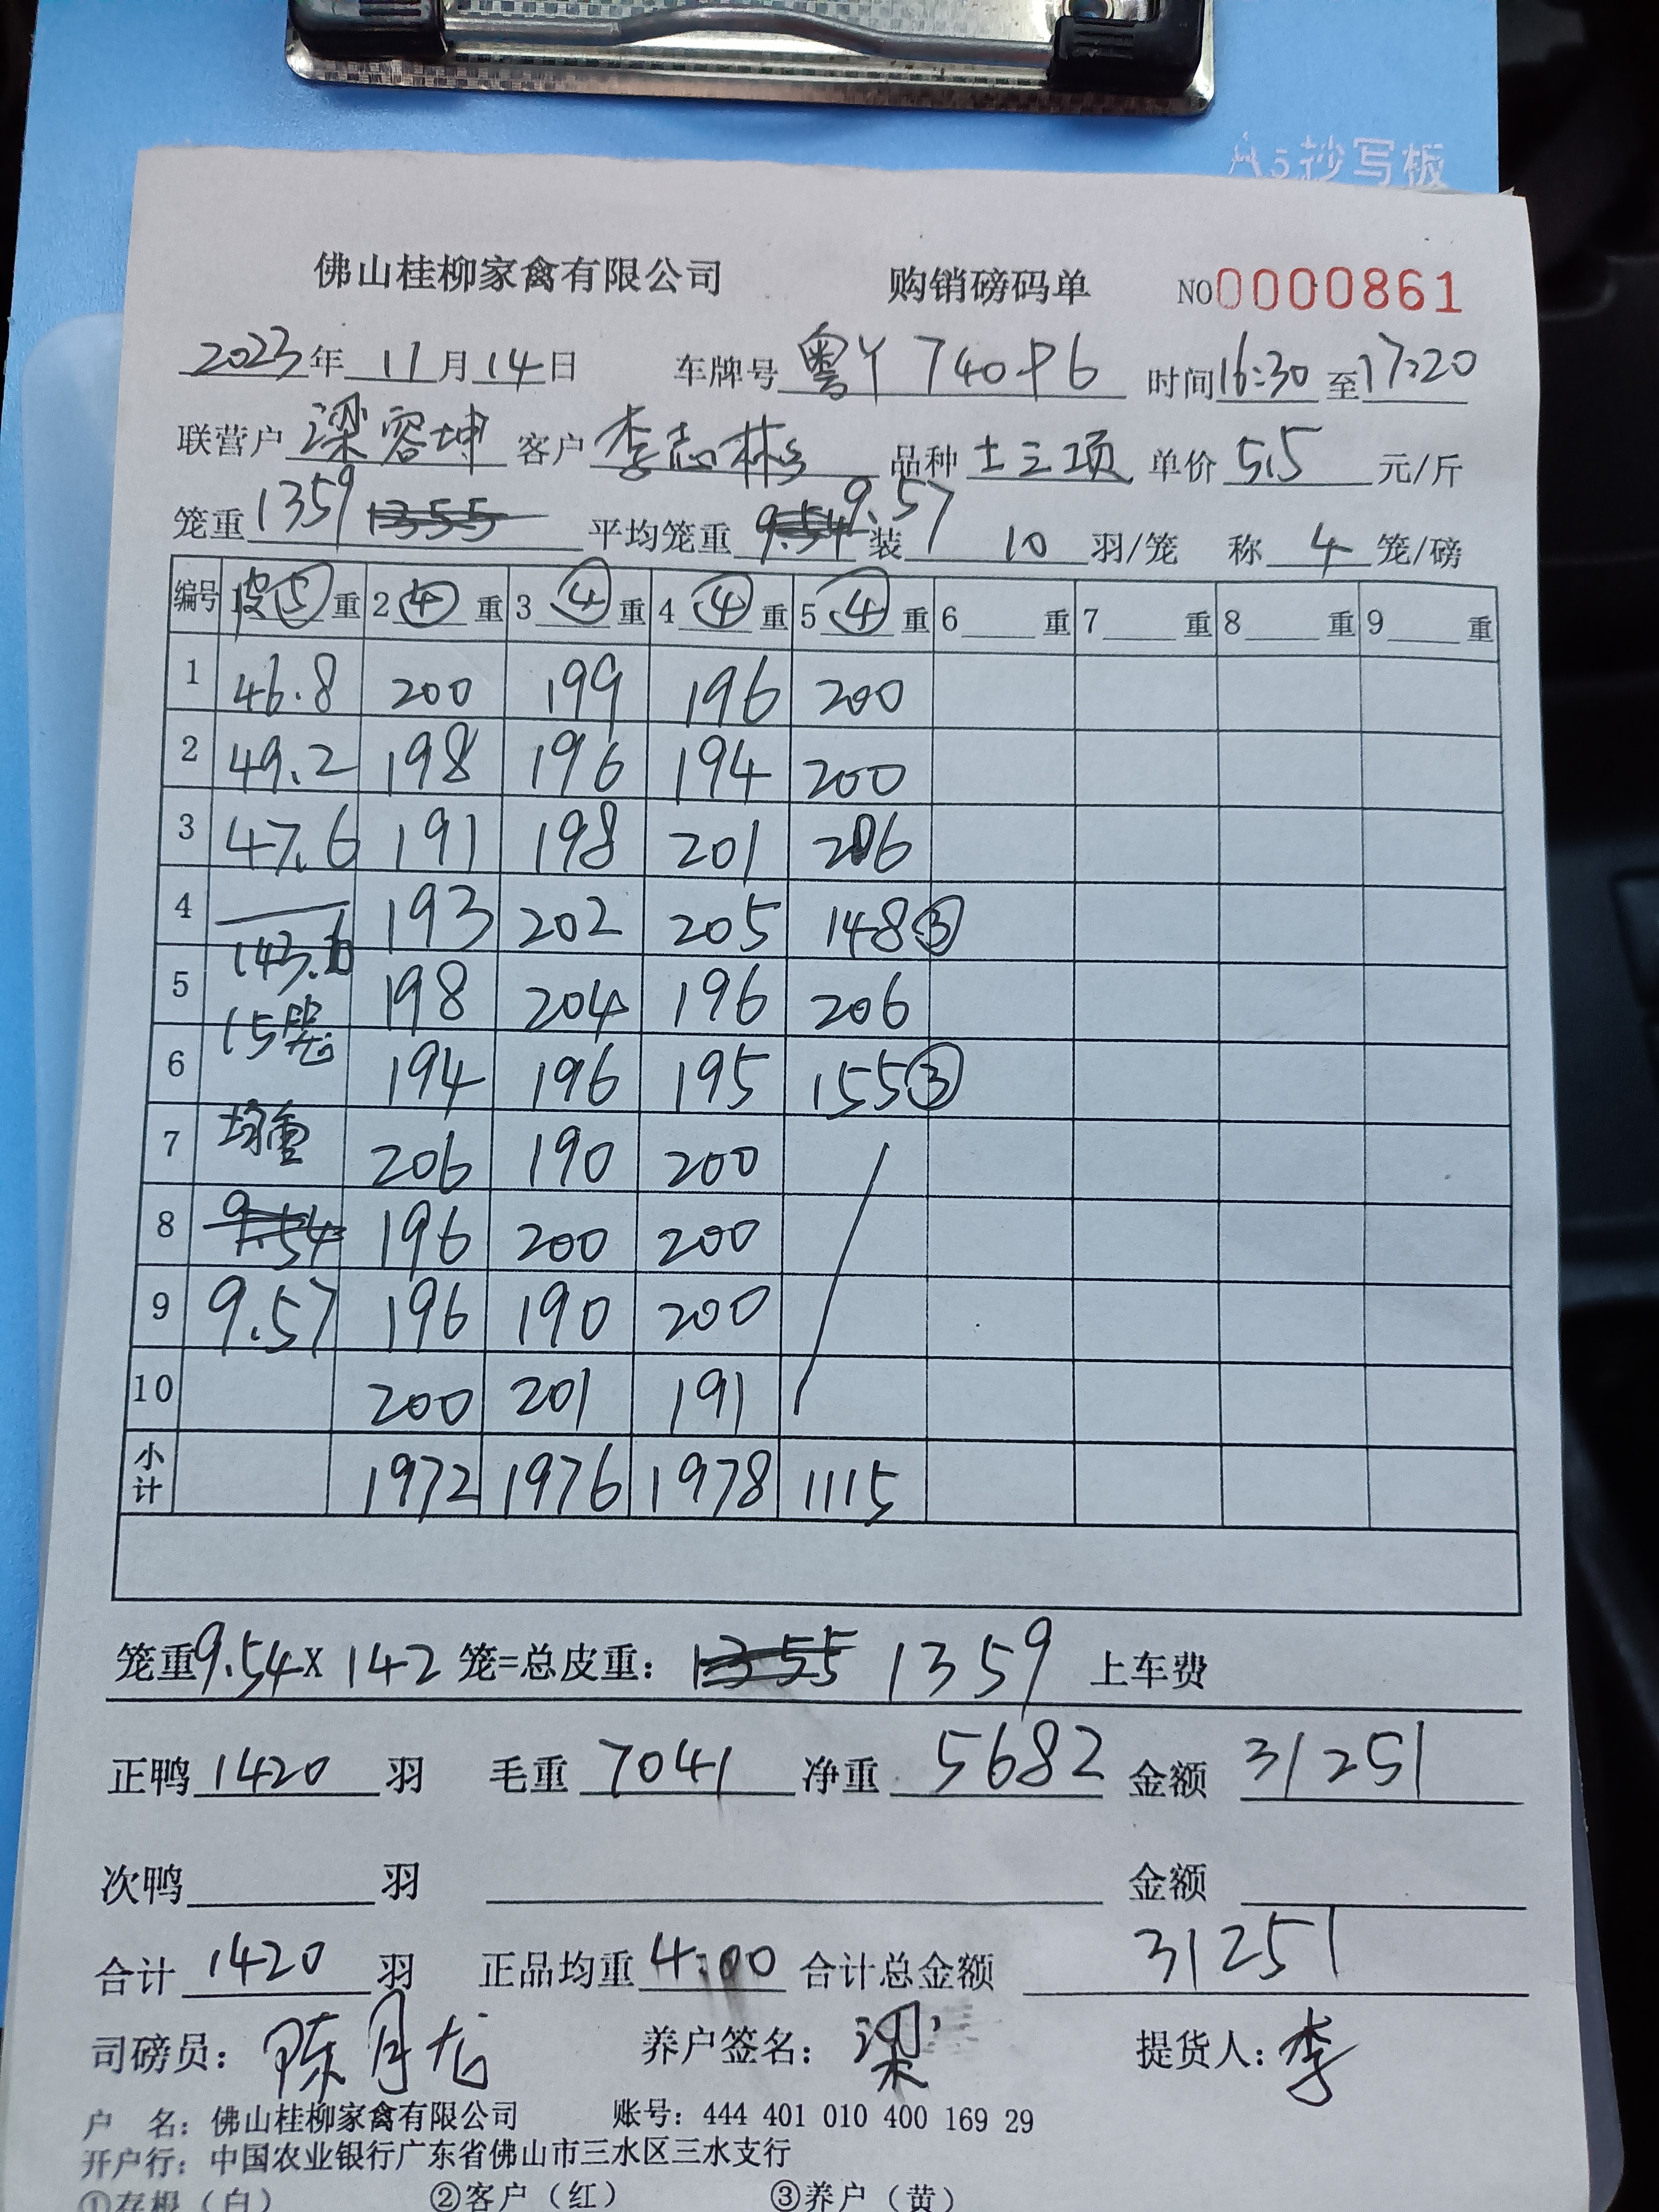 A5抄写板
佛山桂柳家禽有限公司 购销磅码单 NO0000861
2023年11月14日 车牌号粤Y 740P6 时间16:30至17:20
联营户梁容坤 客户李志彬 品种土三项 单价5.5元/斤
笼重1359 1355 平均笼重9.54 9.57 装10羽/笼 称4笼/磅
编号 皮⑤重 2④重 3④重 4④重 5④重 6重 7重 8重 9重
1 46.8 200 199 196 200
2 49.2 198 196 194 200
3 47.6 191 198 201 206
4 193 202 205 148③
143.6
5 198 204 196 206
15笼
6 194 196 195 155③
7 均重 206 190 200
8 9.54 196 200 200
9 9.57 196 190 200
10 200 201 191
小计 1972 1976 1978 1115
笼重9.54X142笼=总皮重：1355 1359 上车费
正鸭1420羽 毛重7041 净重5682 金额31251
次鸭 羽 金额
合计1420羽 正品均重4.00 合计总金额31251
司磅员：陈月龙 养户签名：梁 提货人：李
户 名：佛山桂柳家禽有限公司 账号：444 401 010 400 169 29
开户行：中国农业银行广东省佛山市三水区三水支行
①存根（白） ②客户（红） ③养户（黄）